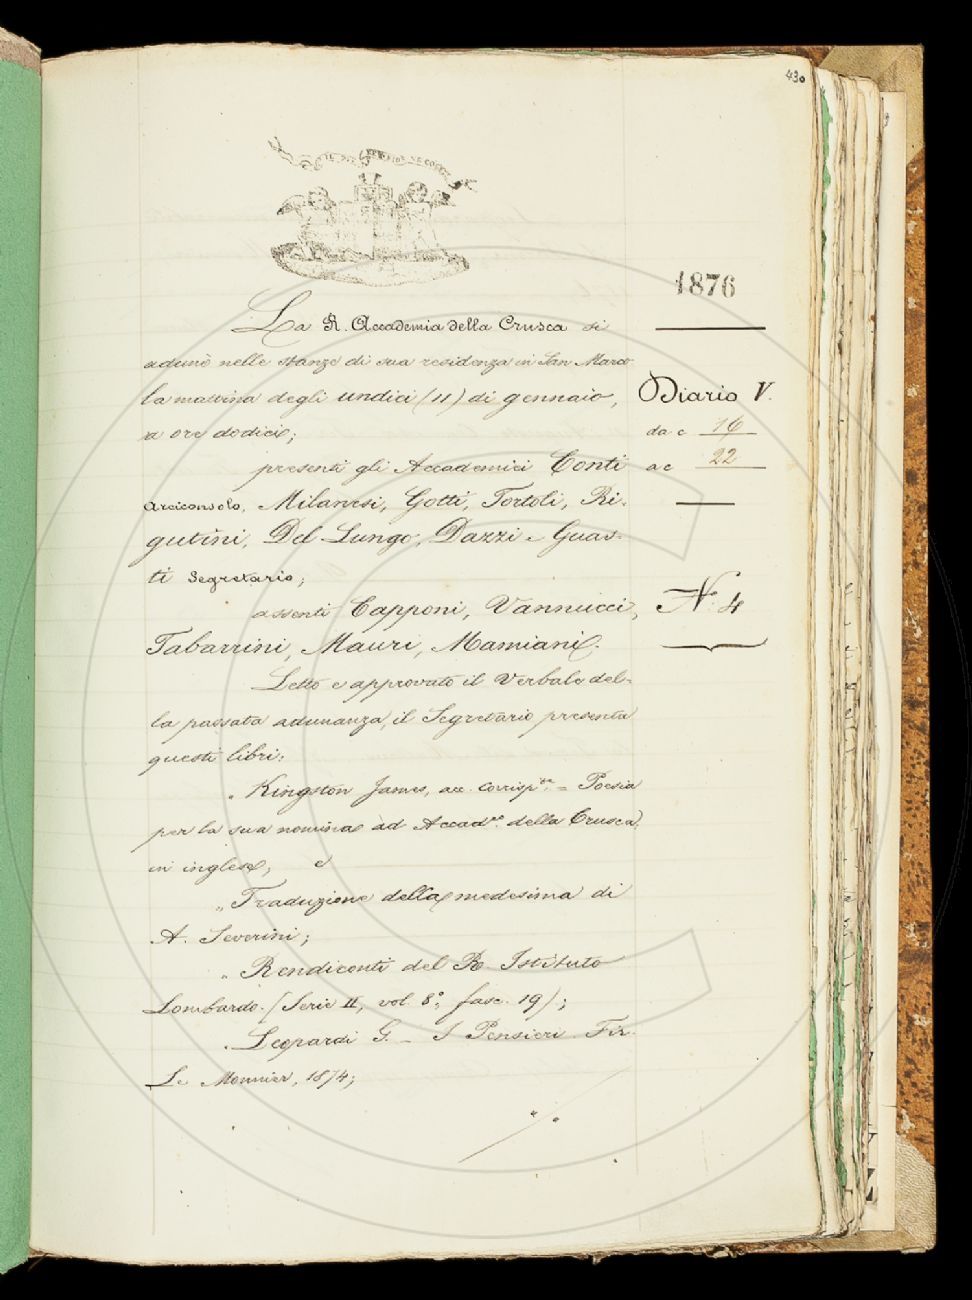 430
IL PIÙ BEL FIOR NE COGLIE
1876
La R. Accademia della Crusca si
adunò nelle stanze di sua residenza in San Marco
la mattina degli undici (11) di gennaio,
a ore dodici;
presenti gli Accademici Conti
Arciconsolo, Milanesi, Gotti, Tortoli, Ri-
gutini, Del Lungo, Dazzi e Guas-
ti Segretario;
assenti Capponi, Vannucci,
Tabarrini, Mauri, Mamiani.
Letto e approvato il Verbale del-
la passata adunanza, il Segretario presenta
questi libri:
„ Kingston James, acc. corrisp.te = Poesia
per la sua nomina ad Accad.co della Crusca,
in inglese, e
„ Traduzione della medesima di
A. Severini;
„ Rendiconti del R. Istituto
Lombardo. (Serie II, vol. 8°, fasc. 19);
„ Leopardi G. - I Pensieri. Fir.
Le Monnier, 1874;
./.
Diario V.
da c 16
a c 22
N. 4